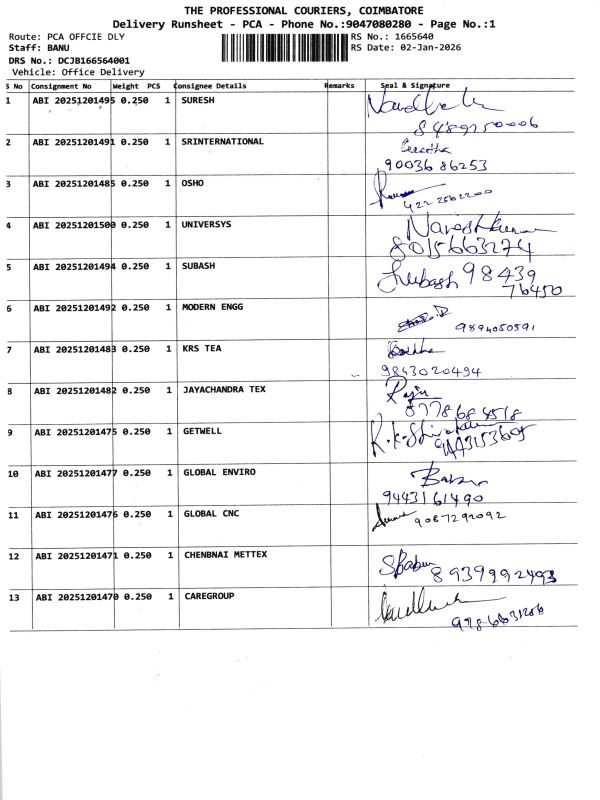 THE PROFESSIONAL COURIERS, COIMBATORE
Delivery Runsheet - PCA - Phone No.:9047080280 - Page No.:1
Route: PCA OFFCIE DLY RS No.: 1665640
Staff: BANU RS Date: 02-Jan-2026
DRS No.: DCJB166564001
Vehicle: Office Delivery
S No Consignment No Weight PCS Consignee Details Remarks Seal & Signature
1 ABI 20251201495 0.250 1 SURESH
8489750006
2 ABI 20251201491 0.250 1 SRINTERNATIONAL
9003686253
3 ABI 20251201485 0.250 1 OSHO
4222562200
4 ABI 20251201500 0.250 1 UNIVERSYS Nareshkumar
8015663274
5 ABI 20251201494 0.250 1 SUBASH Subash 98439
76450
6 ABI 20251201492 0.250 1 MODERN ENGG
9894050591
7 ABI 20251201483 0.250 1 KRS TEA
9843020494
8 ABI 20251201482 0.250 1 JAYACHANDRA TEX Raju
8778684518
9 ABI 20251201475 0.250 1 GETWELL
10 ABI 20251201477 0.250 1 GLOBAL ENVIRO Babu
9443161490
11 ABI 20251201476 0.250 1 GLOBAL CNC
9087292092
12 ABI 20251201471 0.250 1 CHENBNAI METTEX SBabu
8939992493
13 ABI 20251201470 0.250 1 CAREGROUP
9786631206